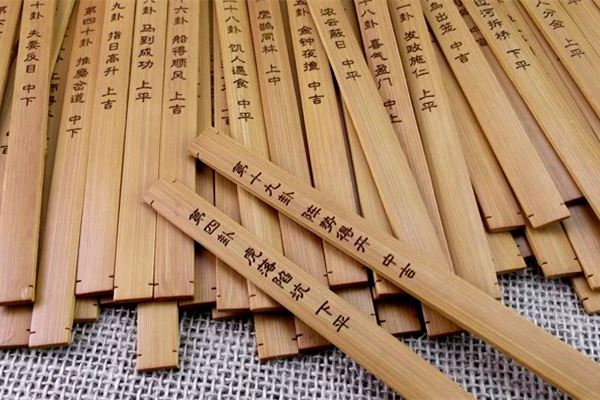 十卦 夫妻反目 中下
第四十卦 推磨岔道 中下
九卦 指日高升 上吉
卦 马到成功 上平
十六卦 船得顺风 上吉
十八卦 饥人遇食 中平
鹰鹊同林 上中
五卦 金钟夜撞 中吉
浓云蔽日 中平
八卦 喜气盈门 中上
卦 发政施仁 上平
鸟出笼 中吉
过河拆桥 下平
人分金 上平
第十九卦 阵势得开 中吉
第四卦 虎落陷坑 下平